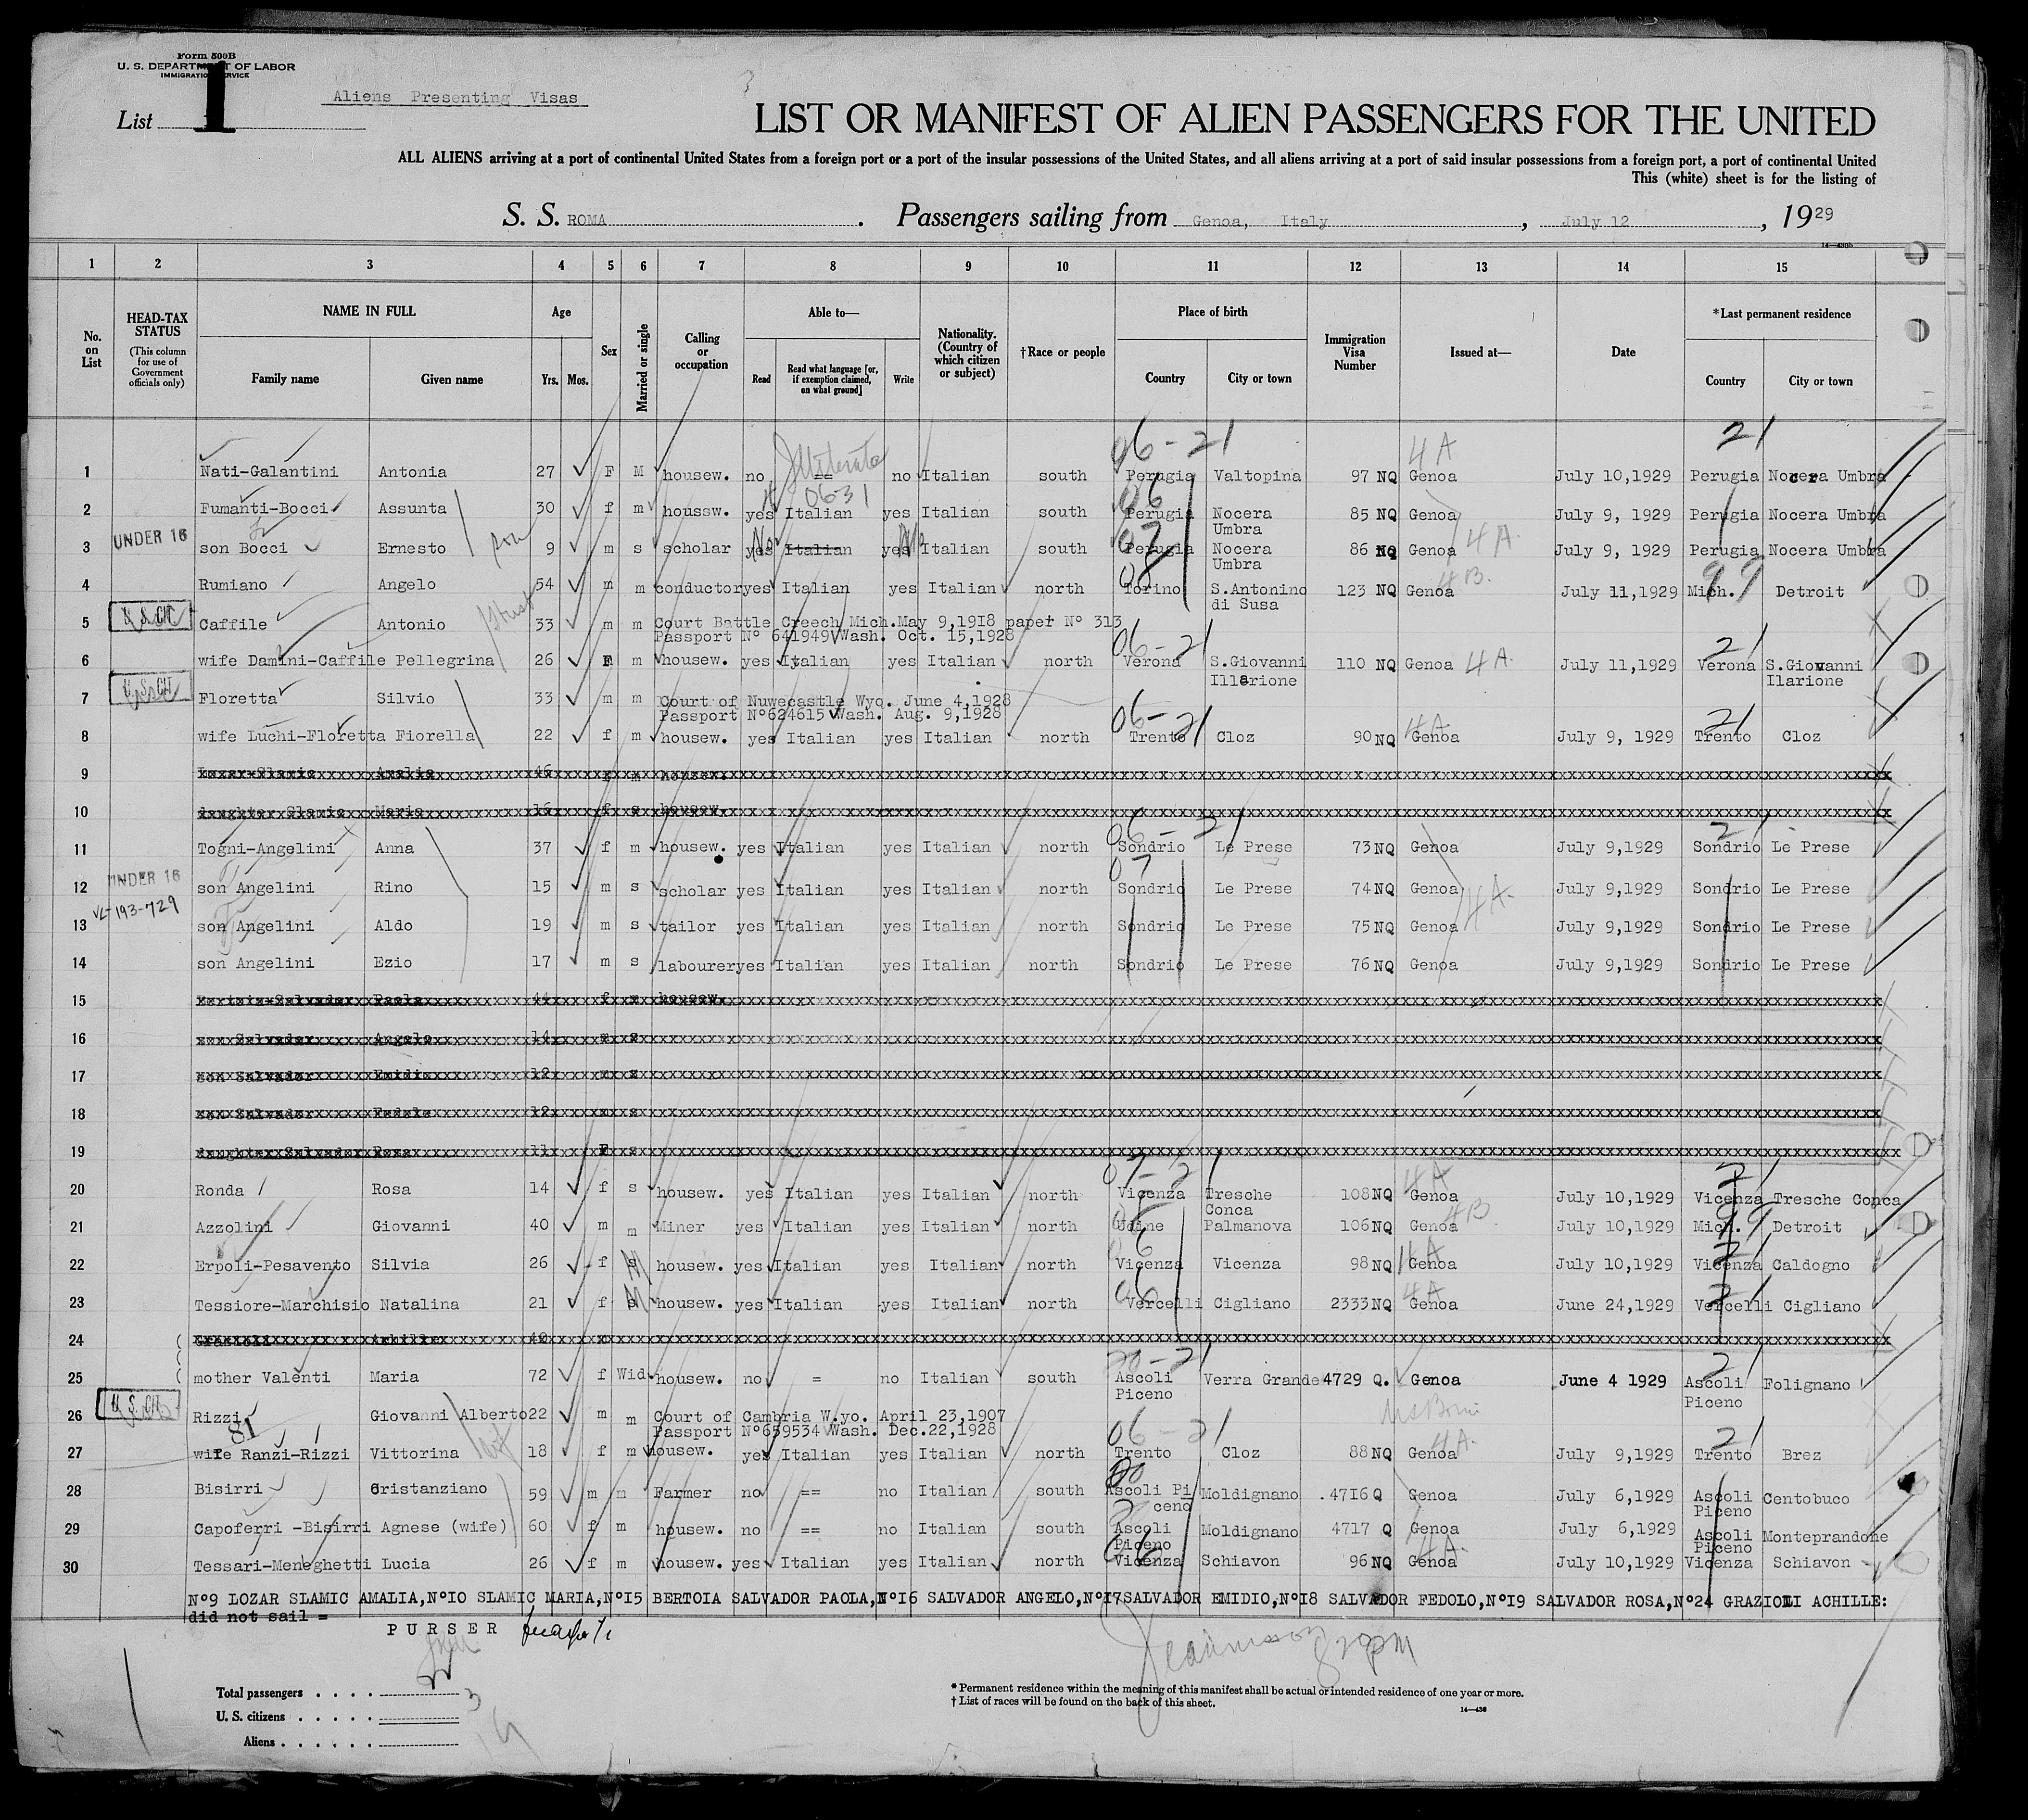 Form 500B
U. S. DEPARTMENT OF LABOR
IMMIGRATION SERVICE
Aliens Presenting Visas
List 1
LIST OR MANIFEST OF ALIEN PASSENGERS FOR THE UNITED
ALL ALIENS arriving at a port of continental United States from a foreign port or a port of the insular possessions of the United States, and all aliens arriving at a port of said insular possessions from a foreign port, a port of continental United
This (white) sheet is for the listing of
S. S. ROMA . Passengers sailing from Genoa, Italy , July 12 , 1929
14—430b
1 2 3 4 5 6 7 8 9 10 11 12 13 14 15
No. on List
HEAD-TAX STATUS (This column for use of Government officials only)
NAME IN FULL Family name Given name
Age Yrs. Mos.
Sex
Married or single
Calling or occupation
Able to— Read Read what language [or, if exemption claimed, on what ground] Write
Nationality. (Country of which citizen or subject)
†Race or people
Place of birth Country City or town
Immigration Visa Number
Issued at—
Date
*Last permanent residence Country City or town
06-21 4A 21
1 Nati-Galantini Antonia 27 F M housew. no Illiterate == no Italian south Perugia Valtopina 97 NQ Genoa July 10,1929 Perugia Nocera Umbra
0631 06
2 Fumanti-Bocci Assunta 30 f m houssw. yes Italian yes Italian south Perugia Nocera Umbra 85 NQ Genoa July 9, 1929 Perugia Nocera Umbra
3 UNDER 16 son Bocci Ernesto 9 m s scholar yes No Italian yes No Italian south 07 Perugia Nocera Umbra 86 NQ Genoa 4A. July 9, 1929 Perugia Nocera Umbra
4 Rumiano Angelo 54 m m conductor yes Italian yes Italian north 08 Torino S.Antonino di Susa 123 NQ Genoa 4B. July 11,1929 Mich. 99 Detroit
5 U.S.CIT. Caffile Antonio 33 m m Court Battle Creech Mich.May 9,1918 paper N° 313
Passport N° 641949 Wash. Oct. 15,1928
06-21 21
6 wife Damini-Caffile Pellegrina 26 F m housew. yes Italian yes Italian north Verona S.Giovanni Illarione 110 NQ Genoa 4A. July 11,1929 Verona S.Giovanni Ilarione
7 U.S.CIT. Floretta Silvio 33 m m Court of Nuwecastle Wyo. June 4,1928
Passport N°624615 Wash. Aug. 9,1928
06-21 4A. 21
8 wife Luchi-Floretta Fiorella 22 f m housew. yes Italian yes Italian north Trento Cloz 90 NQ Genoa July 9, 1929 Trento Cloz
9 Lozar-Slamic Amalia 46 f m housew.
10 daughter Slamic Maria 16 f s housew.
06-21 21
11 Togni-Angelini Anna 37 f m housew. yes Italian yes Italian north Sondrio Le Prese 73 NQ Genoa July 9,1929 Sondrio Le Prese
12 UNDER 16 son Angelini Rino 15 m s scholar yes Italian yes Italian north 07 Sondrio Le Prese 74 NQ Genoa 4A. July 9,1929 Sondrio Le Prese
13 son Angelini Aldo 19 m s tailor yes Italian yes Italian north Sondrio Le Prese 75 NQ Genoa July 9,1929 Sondrio Le Prese
14 son Angelini Ezio 17 m s labourer yes Italian yes Italian north Sondrio Le Prese 76 NQ Genoa July 9,1929 Sondrio Le Prese
15 Bertoia-Salvador Paola 44 f m housew.
16 son Salvador Angelo 14 m s
17 son Salvador Emidio 12 m s
18 son Salvador Fedele 12 m s
19 daughter Salvador Rosa 11 F s
07-21 4A 21
20 Ronda Rosa 14 f s housew. yes Italian yes Italian north Vicenza Tresche Conca 108 NQ Genoa July 10,1929 Vicenza Tresche Conca
21 Azzolini Giovanni 40 m m Miner yes Italian yes Italian north Udine Palmanova 106 NQ Genoa 4B July 10,1929 Mich. 99 Detroit
22 Erpoli-Pesavento Silvia 26 f s M housew. yes Italian yes Italian north 06 Vicenza Vicenza 98 NQ 4A Genoa July 10,1929 Vicenza 21 Caldogno
23 Tessiore-Marchisio Natalina 21 f s M housew. yes Italian yes Italian north 06 Vercelli Cigliano 2333 NQ 4A Genoa June 24,1929 Vercelli 21 Cigliano
24 Grazioli Achille 40 m
20-21 21
25 mother Valenti Maria 72 f Wid. housew. no = no Italian south Ascoli Piceno Verra Grande 4729 Q. Genoa June 4 1929 Ascoli Piceno Folignano
26 U.S.CIT. Rizzi Giovanni Alberto 22 m m Court of Cambria W.yo. April 23,1907
Passport N°659534 Wash. Dec.22,1928
81 06-21 4A. 21
27 wife Ranzi-Rizzi Vittorina 18 f m housew. yes Italian yes Italian north Trento Cloz 88 NQ Genoa July 9,1929 Trento Brez
28 Bisirri Cristanziano 59 m m Farmer no == no Italian south 20 Ascoli Piceno Moldignano 4716 Q Genoa July 6,1929 Ascoli Piceno Centobuco
29 Capoferri -Bisirri Agnese (wife) 60 f m housew. no == no Italian south Ascoli Piceno Moldignano 4717 Q Genoa July 6,1929 Ascoli Piceno Monteprandone
30 Tessari-Meneghetti Lucia 26 f m housew. yes Italian yes Italian north 06 Vicenza Schiavon 96 NQ Genoa 4A. July 10,1929 Vicenza Schiavon
N°9 LOZAR SLAMIC AMALIA,N°10 SLAMIC MARIA,N°15 BERTOIA SALVADOR PAOLA,N°16 SALVADOR ANGELO,N°17SALVADOR EMIDIO,N°18 SALVADOR FEDOLO,N°19 SALVADOR ROSA,N°24 GRAZIOLI ACHILLE:
did not sail =
PURSER
820pm
Total passengers . . . .
U. S. citizens . . . . . 3
Aliens . . . . . .
* Permanent residence within the meaning of this manifest shall be actual or intended residence of one year or more.
† List of races will be found on the back of this sheet.
14—430